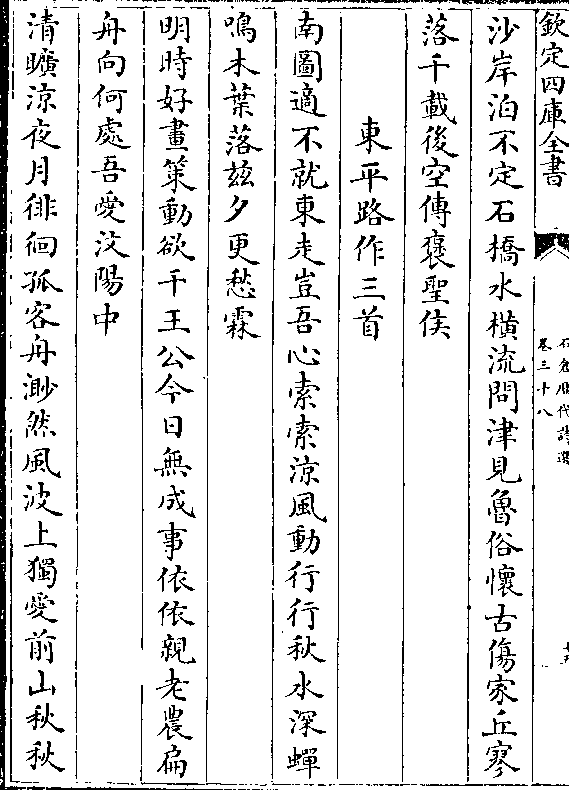 欽定四庫全書
石倉歷代詩選
卷三十八
沙岸泊不定石橋水橫流問津見魯俗懷古傷家丘寥
落千載後空傳襃聖侯
東平路作三首
南圖適不就東走豈吾心索索涼風動行行秋水深蟬
鳴木葉落兹夕更愁霖
明時好畫策動欲干王公今日無成事依依親老農扁
舟向何處吾愛汶陽中
清曠涼夜月徘徊孤客舟渺然風波上獨愛前山秋秋